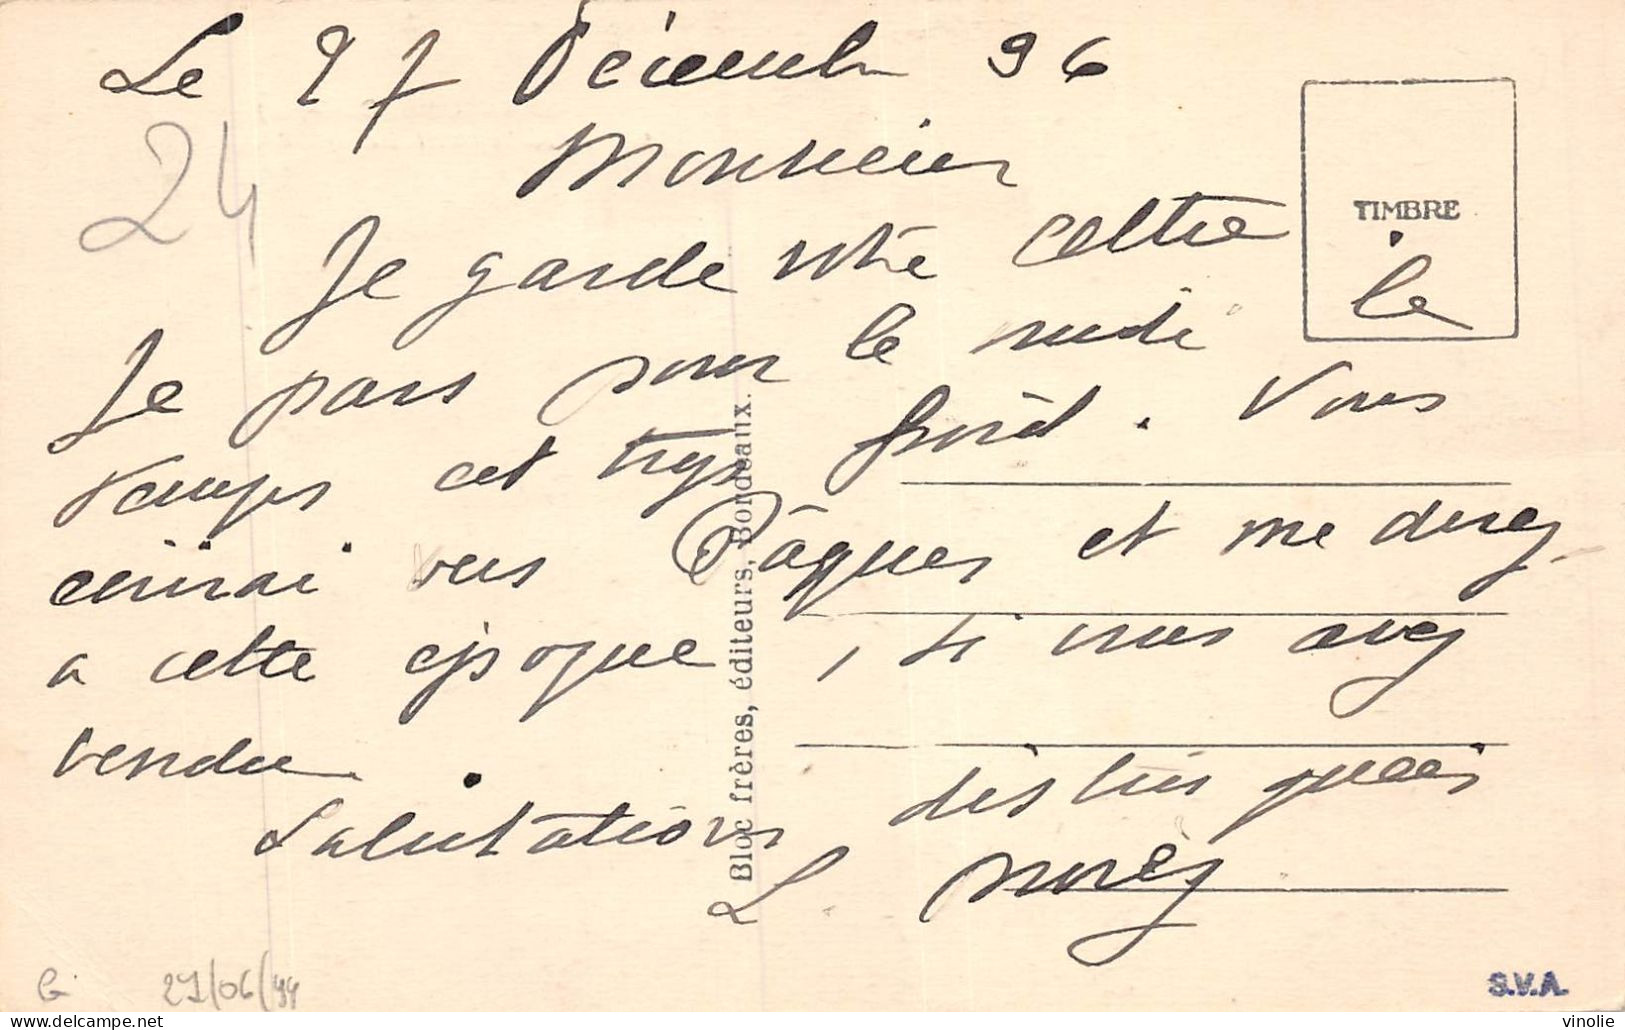 Le 27 Décembre 96
24
Monsieur
TIMBRE
Je garde votre lettre le
Je pars pour le midi
temps est trop froid. Vous
écrirai vers Pâques et me direz
a cette époque, si vous avez
vendu.
Salutations distinguées
L.
Bloc frères, éditeurs, Bordeaux.
G
27/06/94
S.V.A.
vinolie